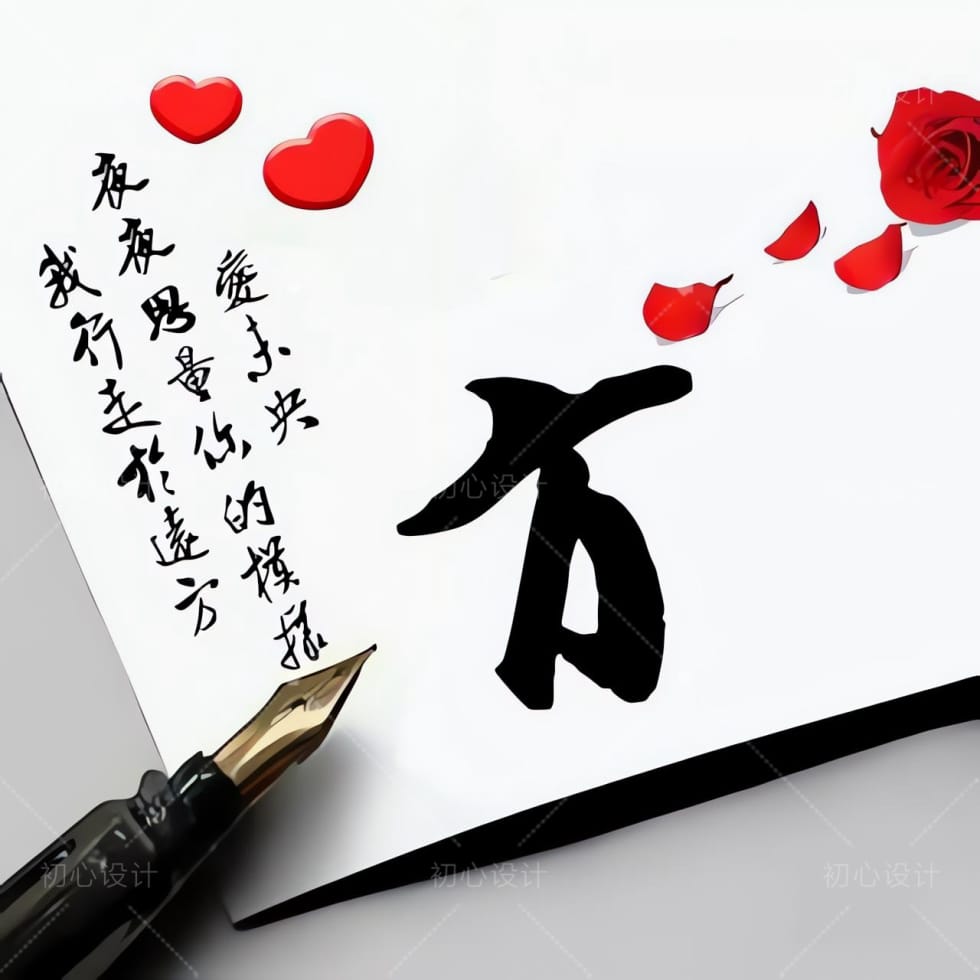 愛未央
夜夜思量你的模樣
我行走於遠方
设计
初心设计
初心设计
初心设计
初心设计